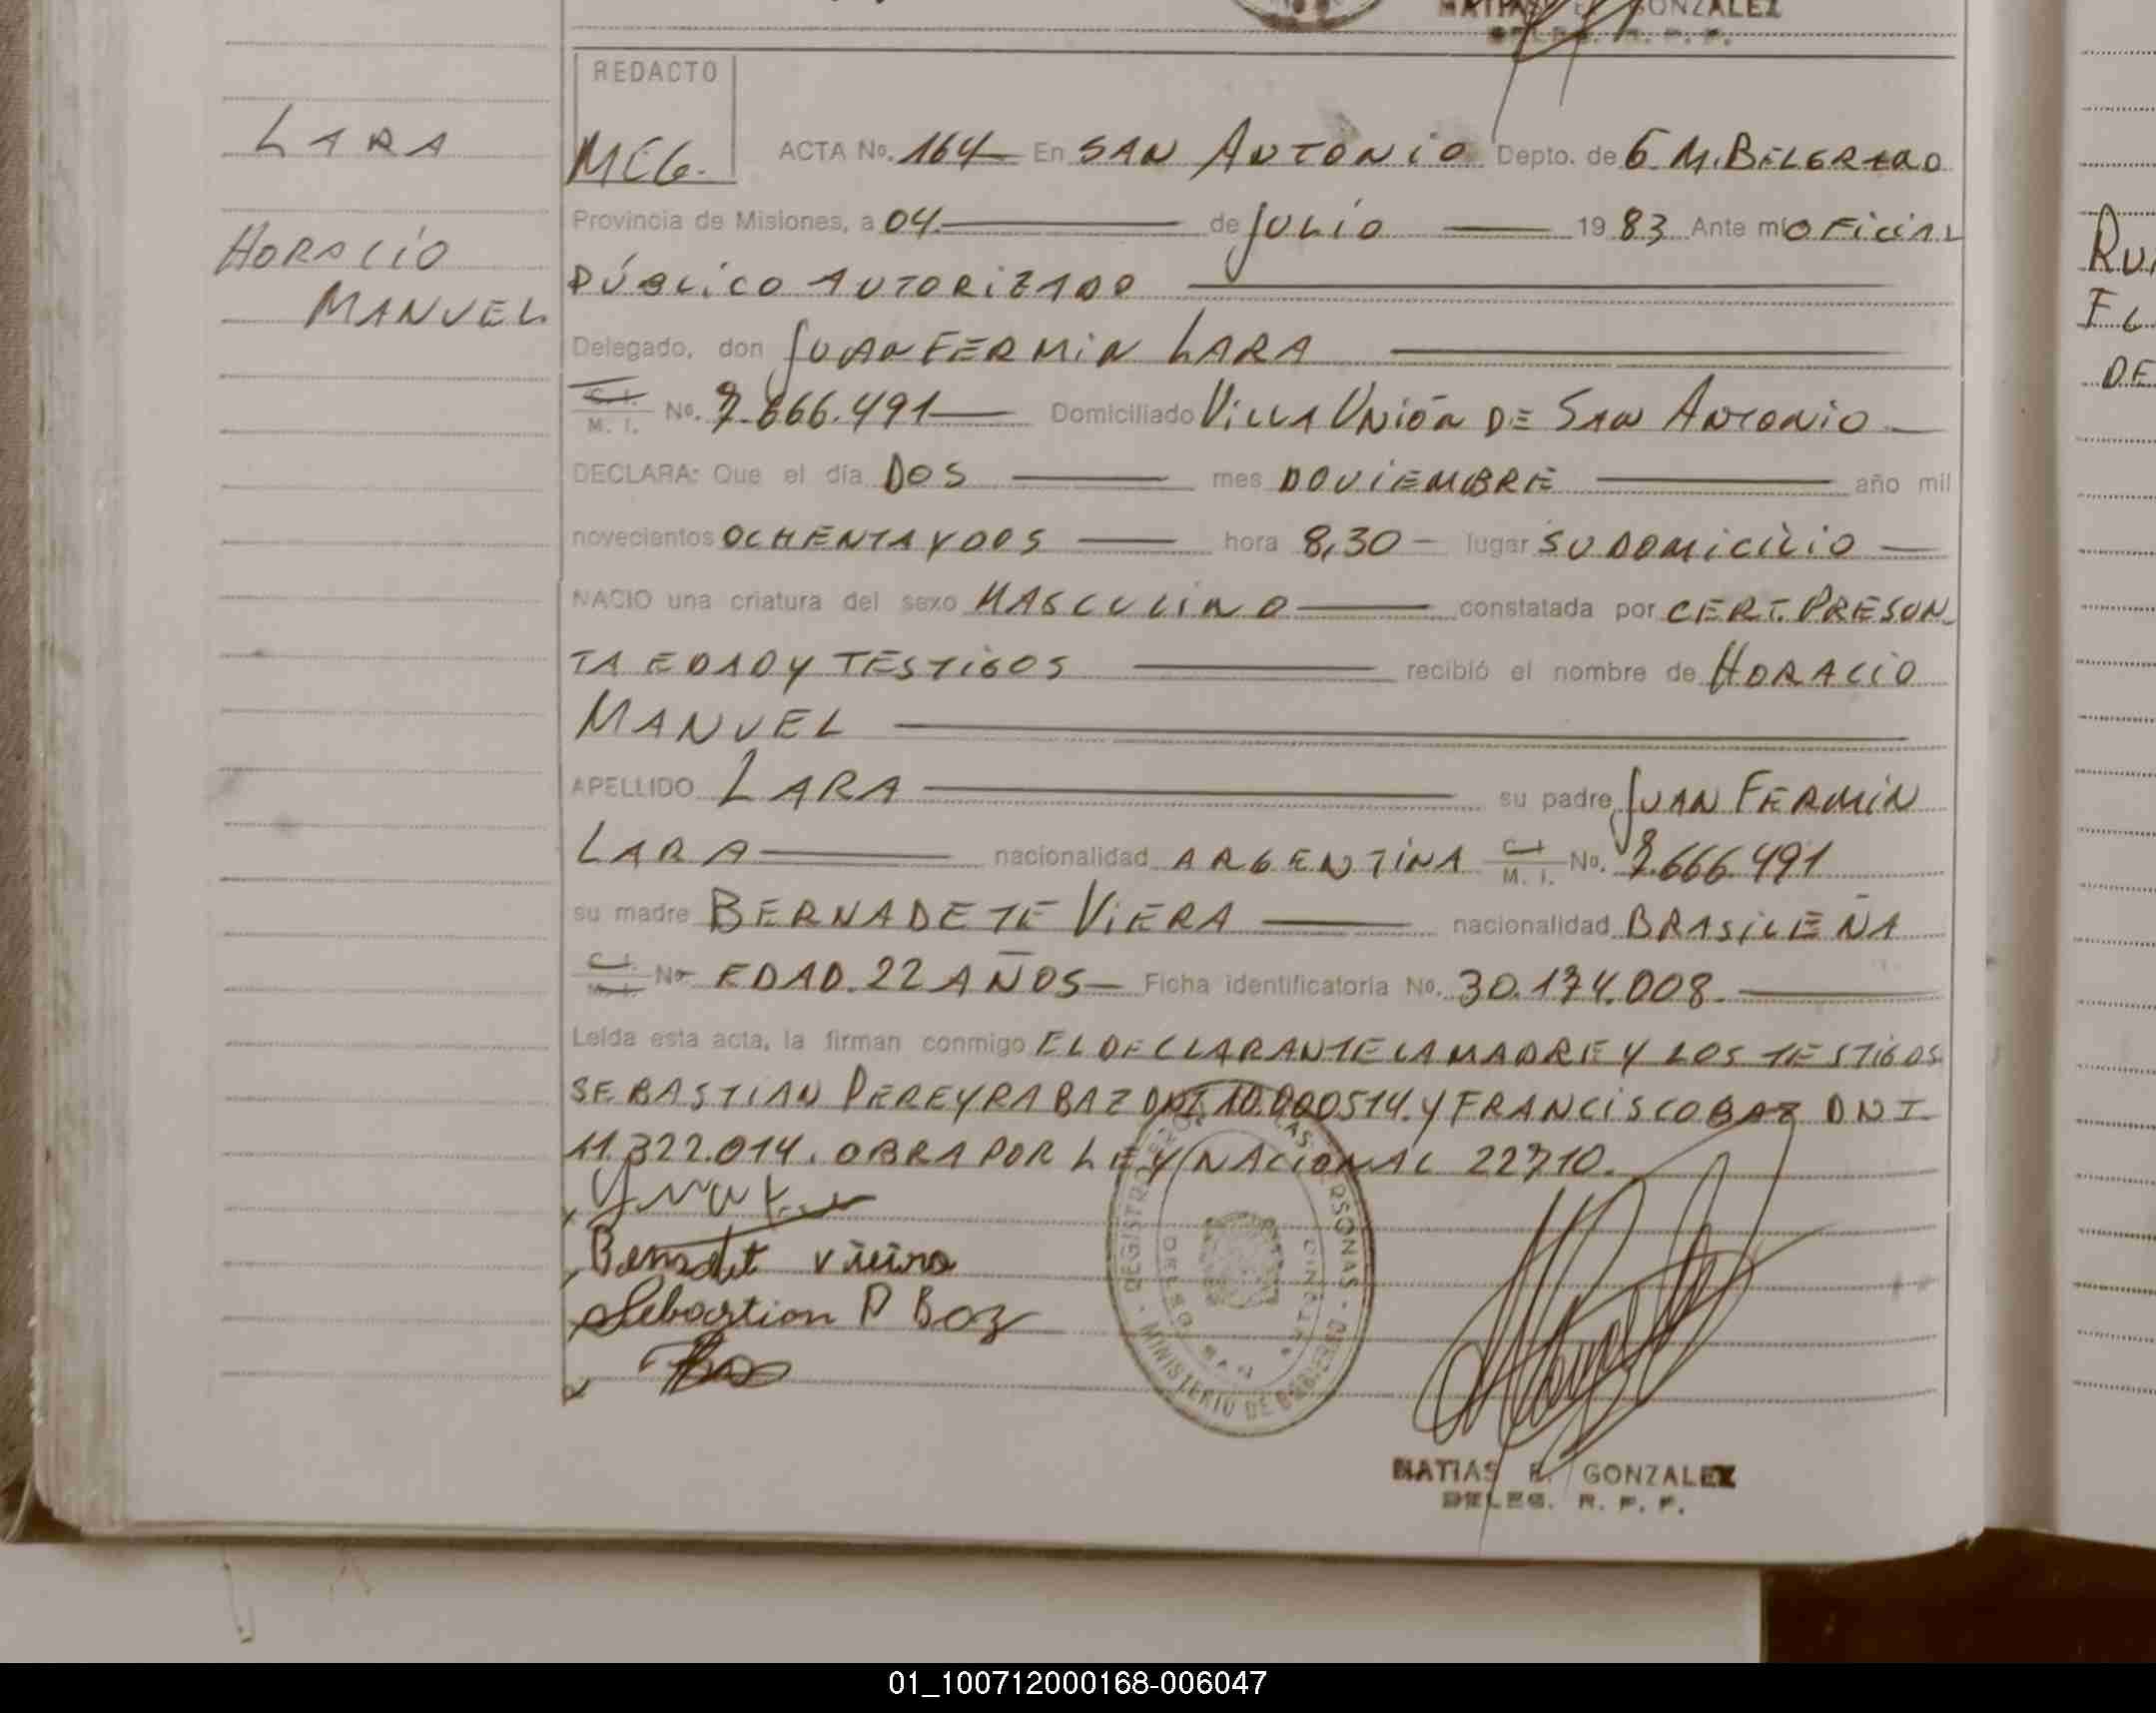 MATIAS E. GONZALEZ
DELEG. R. P. P.
LARA
HORACIO
MANUEL
REDACTO
MCG.
ACTA No. 164 En SAN ANTONIO Depto. de G M. BELGRANO
Provincia de Misiones, a 04 de JULIO 1983 Ante mi OFICIAL
PÚBLICO AUTORIZADO
Delegado, don JUAN FERMIN LARA
C. I.
M. I. No. 7.666.491 Domiciliado VILLA UNIÓN DE SAN ANTONIO
DECLARA: Que el día DOS mes NOVIEMBRE año mil
novecientos OCHENTA Y DOS hora 8,30 lugar SU DOMICILIO
NACIO una criatura del sexo MASCULINO constatada por CERT. PRESUN
TA EDAD Y TESTIGOS recibió el nombre de HORACIO
MANUEL
APELLIDO LARA su padre JUAN FERMIN
LARA nacionalidad ARGENTINA C. I.
M. I. No. 7.666.491
su madre BERNADETE VIERA nacionalidad BRASILEÑA
C. I.
M. I. No EDAD. 22 AÑOS Ficha identificatoria No. 30.174.008.
Leída esta acta, la firman conmigo EL DECLARANTE LA MADRE Y LOS TESTIGOS
SEBASTIAN PEREYRA BAZ DNI 10.000514. Y FRANCISCO BAZ DNI
11.322.014. OBRA POR LEY NACIONAL 22710.
Bernadet vieira
Sebastion P Boz
REGISTRO LAS PERSONAS
MINISTERIO DE GOBIERNO
SAN ANTONIO
MATIAS E. GONZALEZ
DELEG. R. P. P.
RU
FL
DE
01_100712000168-006047